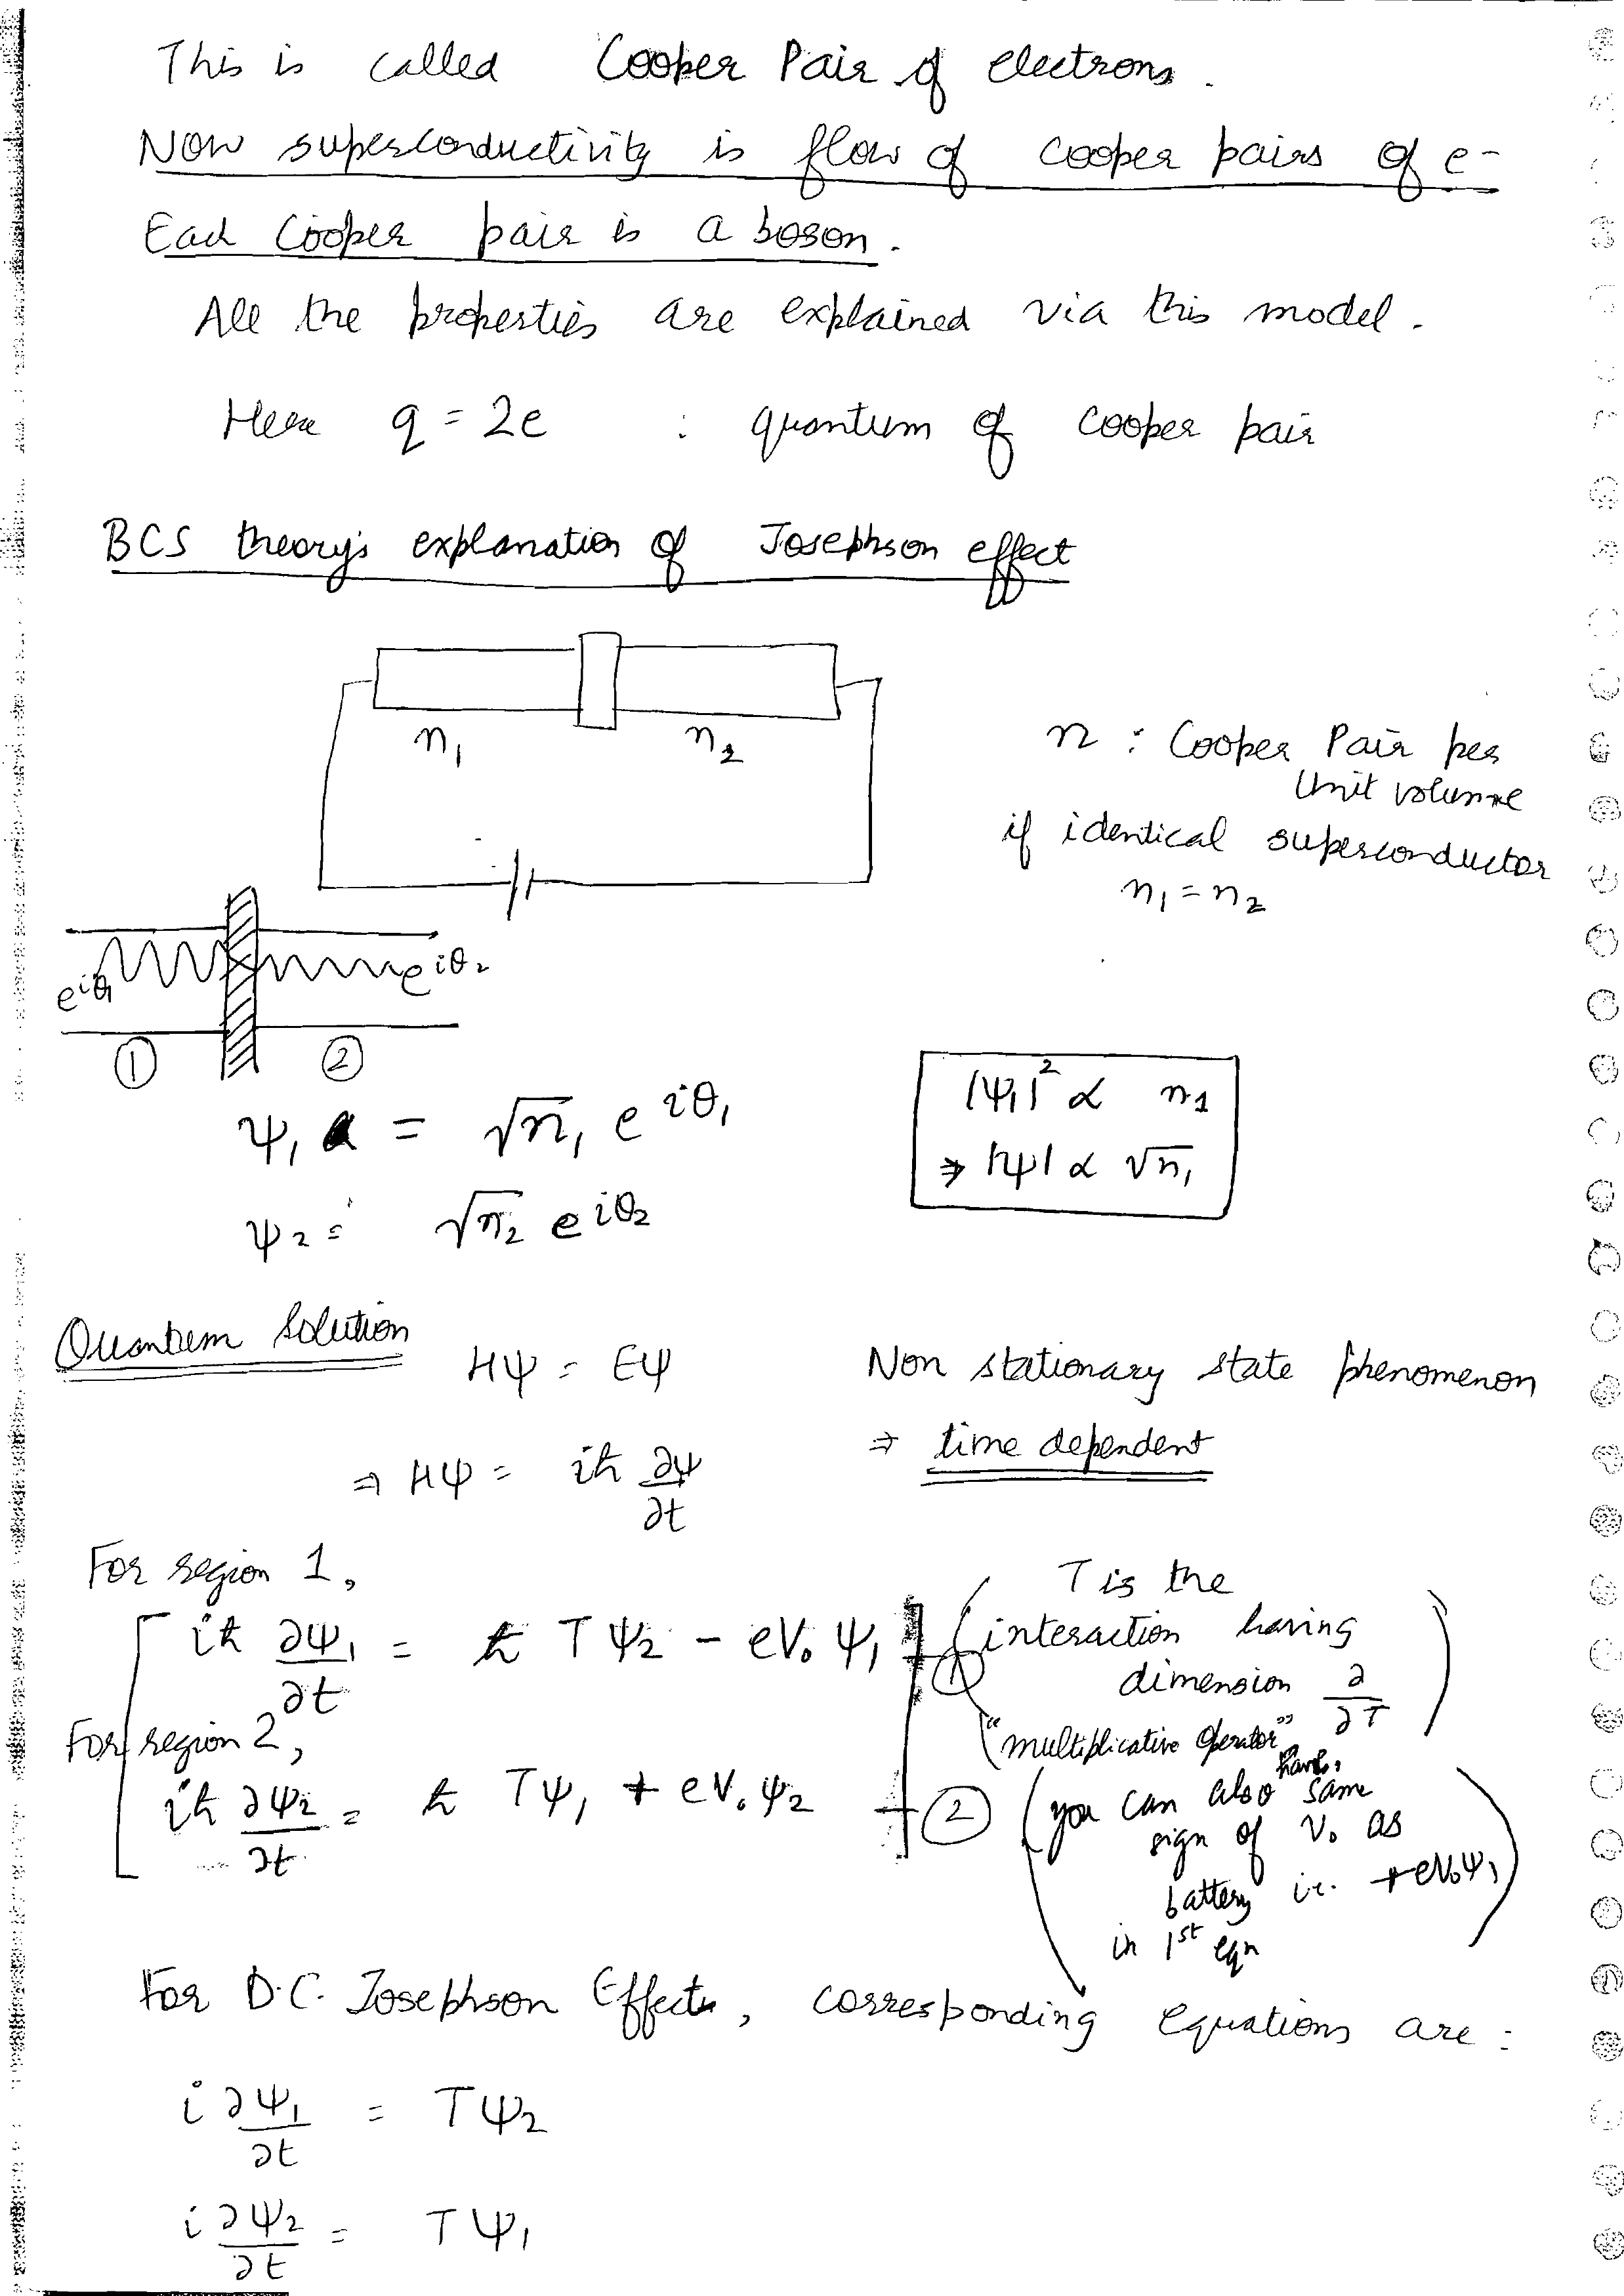 This is called Cooper Pair of electrons.
Now superconductivity is flow of cooper pairs of e-
Each Cooper pair is a boson.
All the properties are explained via this model.
Here q = 2e : quantum of cooper pair
BCS theory's explanation of Josephson effect
n₁ n₂
n : Cooper Pair per
Unit volume
if identical superconductor
n₁ = n₂
e^iθ₁ e^iθ₂
① ②
ψ₁ = √n₁ e^iθ₁
|ψ₁|² ∝ n₁
⇒ |ψ| ∝ √n₁
ψ₂ = √n₂ e^iθ₂
Quantum Solution
Hψ = Eψ
Non stationary state phenomenon
⇒ Hψ = iħ ∂ψ/∂t
⇒ time dependent
For region 1,
iħ ∂ψ₁/∂t = ħ Tψ₂ - eV₀ψ₁ ①
(T is the
interaction having
dimension ∂/∂T)
"multiplicative operator"
For region 2,
iħ ∂ψ₂/∂t = ħ Tψ₁ + eV₀ψ₂ ②
(you can also have same
sign of V₀ as
battery i.e. +eV₀ψ₁
in 1st eqn)
For D.C. Josephson Effects, corresponding equations are :
i ∂ψ₁/∂t = Tψ₂
i ∂ψ₂/∂t = Tψ₁